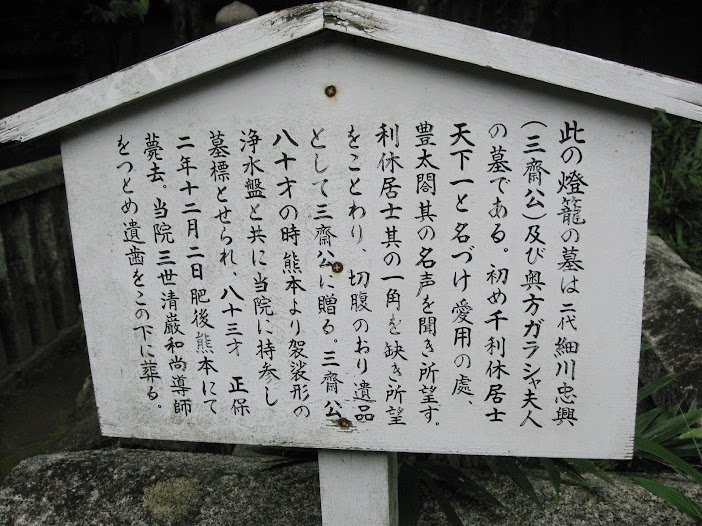 此の燈籠の墓は二代細川忠興
(三齋公)及び奥方ガラシャ夫人
の墓である。初め千利休居士
天下一と名づけ愛用の處、
豊太閤其の名声を聞き所望す。
利休居士其の一角を缺き所望
をことわり、切腹のおり遺品
として三齋公に贈る。三齋公
八十才の時熊本より袈裟形の
浄水盤と共に当院に持参し
墓標とせられ、八十三才 正保
二年十二月二日肥後熊本にて
薨去。当院三世清巌和尚導師
をつとめ遺歯をこの下に葬る。